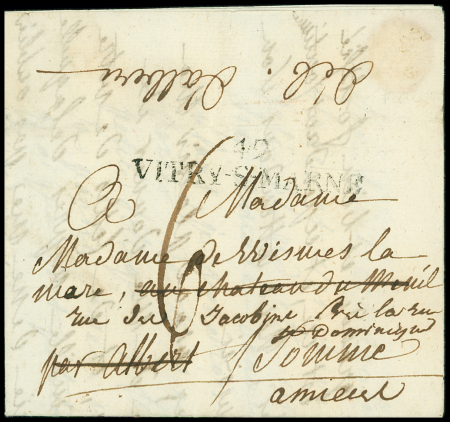 déb. d'albert
49
VITRY-S-MARNE
6
A Madame
Madame de Wismes la
mare, au chateau du Menil
rue des Jacobins près la rue
St Dominique
par Albert Somme
amiens